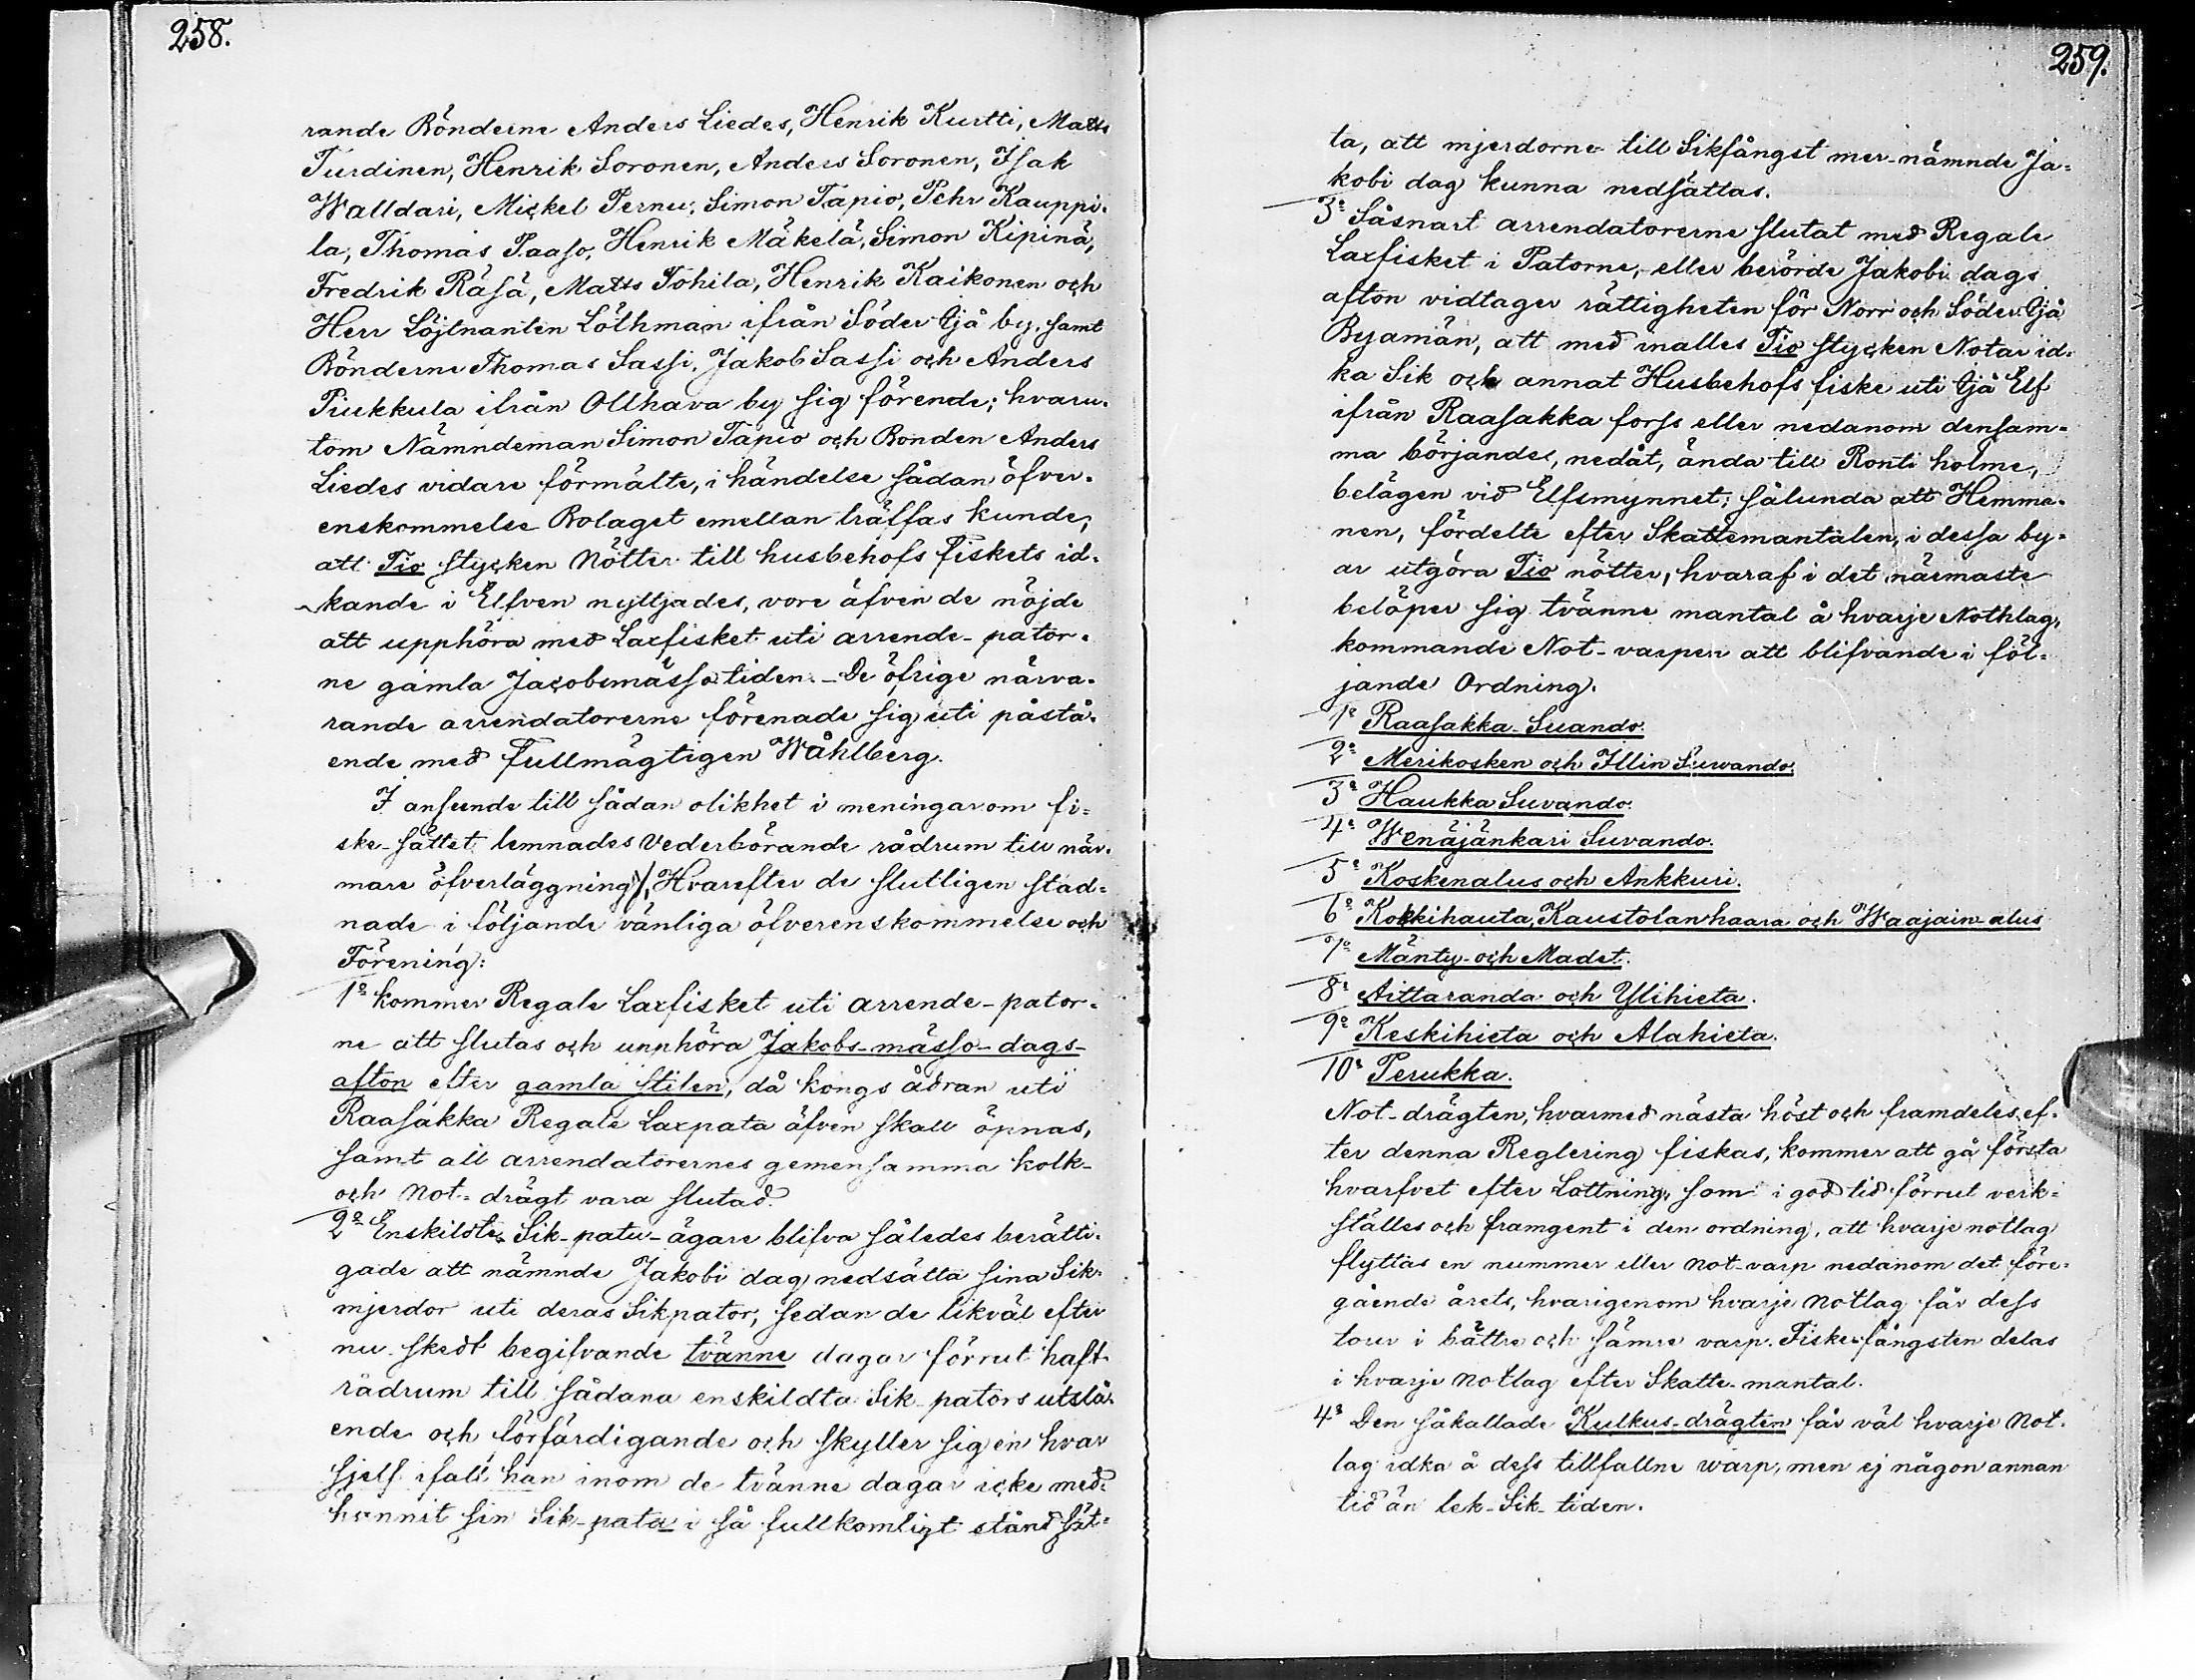 258.
rande Bönderne Anders Liedes, Henrik Kurtti, Matts
Turdinen, Henrik Soronen, Anders Soronen, Isak
Walldari, Mickel Pernu, Simon Tapio, Pehr Kauppi-
la, Thomas Paaso, Henrik Mäkelä, Simon Kipinä,
Fredrik Räsä, Matts Tohila, Henrik Kaikonen och
Herr Löjtnanten Löthman ifrån Söder Ijå by, samt
Bönderne Thomas Sassi, Jakob Sassi och Anders
Piukkula ifrån Olhava by sig förende; hvaru-
tom Nämndeman Simon Tapio och Bonden Anders
Liedes vidare förmälte, i händelse sådan öfver-
enskommelse Bolaget emellan träffas kunde,
att Tio stycken Nötter till husbehofs fiskets id-
kande i Elfven nyttjades, vore äfven de nöjde
att upphöra med Laxfisket uti arrende-pator-
ne gamla Jacobsmässo tiden. - De öfrige närva-
rande arrendatorerne förenade sig uti påstå-
ende med fullmägtigen Wåhlberg.
I anseende till sådan olikhet i meningar om fi-
ske-sättet lemnades Vederbörande rådrum till när-
mare öfverläggning, Hvarefter de slutligen stad-
nade i följande vänliga öfverenskommelse och
Förening:
1o kommer Regale Laxfisket uti arrende-pator-
ne att slutas och upphöra Jakobs-mässo-dags-
afton efter gamla stilen, då kongs ådran uti
Raasakka Regale Laxpata äfven skall öpnas,
samt all arrendatorernes gemensamma kolk-
och not-drägt vara slutad.
2o Enskildte Sik-patu-ägare blifva således berätti-
gade att nämnde Jakobi dag nedsätta sina Sik-
mjerdor uti deras Sikpator, sedan de likväl efter
nu skedt begifvande tvänne dagar förrut haft
rådrum till sådana enskildta Sik-pators utslå-
ende och förfärdigande och skyller sig en hvar
sjelf ifall han inom de tvänne dagar icke med-
hunnit sin Sik-pata i så fullkomligt stånd sät-
259.
ta, att mjerdorne till Sikfångst mer-nämnde Ja-
kobi dag kunna nedsättas.
3o Såsnart arrendatorerne slutat med Regale
Laxfisket i Patorne, eller berörde Jakobi dags
afton vidtager rättigheten för Norr och Söder Ijå
Byamän, att med inalles Tio stycken Notar id-
ka Sik och annat Husbehofs fiske uti Ijå Elf
ifrån Raasakka forss eller nedanom densam-
ma börjandes, nedåt, ända till Ronti holme,
belägen vid Elfsmynnet; sålunda att Hemma-
nen, fördelte efter Skattemantalen, i dessa by-
ar utgöra Tio nötter, hvaraf i det närmaste
belöper sig tvänne mantal å hvarje Nothlag,
kommande Not-varpen att blifvande i föl-
jande Ordning.
1o Raasakka Suando.
2o Merikosken och Illin Suwando.
3o Haukka Suvando.
4o Wenäjänkari Suvando.
5o Koskenalus och Ankkuri.
6o Kokkihauta, Kaustolanhaara och Waajain-alus
7o Mänty- och Madet.
8o Aittaranda och Ylihieta.
9o Keskihieta och Alahieta.
10o Perukka.
Not-drägten, hvarmed nästa höst och framdeles ef-
ter denna Reglering fiskas, kommer att gå första
hvarfvet efter Lottning, som i god tid förrut verk-
ställes och framgent i den ordning, att hvarje notlag
flyttas en nummer eller not-varp nedanom det före-
gående årets, hvarigenom hvarje notlag får dess
tour i bättre och sämre varp. Fiske-fångsten delas
i hvarje notlag efter Skatte-mantal.
4o Den såkallade Kulkus-drägten får väl hvarje Not-
lag idka å dess tillfallne warp, men ej någon annan
tid än lek-Sik-tiden.